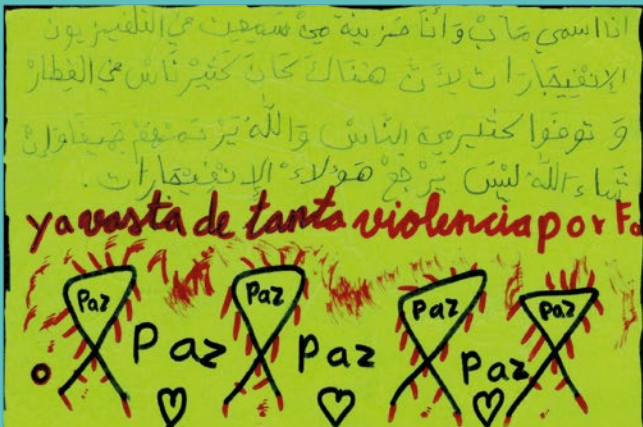 انا اسمي رحاب وَأنَا حَزِينَة مِنْ سَمِعِتْ فِي التلفيزيون
الإنْفِيجَارَات لأنَّ هنَاكَ كَانَ كَثيْر نَاسْ في القِطارْ
وَ توفوا كثير مِن النَاسْ وَاللَّه يَرْحَمْهُمْ جميعًا وَإِنْ
شَاءَ اللَّه لَيْسَ يَرْجَعْ هَؤلاءْ الإنْفِيجَارات.
ya vasta de tanta violencia por Fa
Paz Paz Paz Paz
Paz Paz Paz